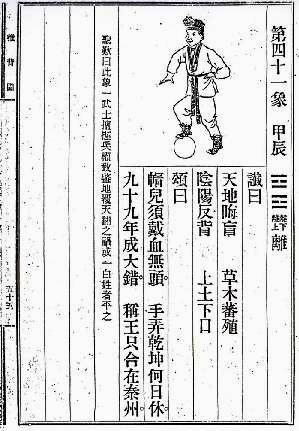 第四十一象 甲辰 離下離上 離
讖曰
天地晦盲 草木蕃殖
陰陽反背 上土下日
頌曰
帽兒須戴血無頭。 手弄乾坤何日休。
九十九年成大錯。 稱王只合在秦州。
聖歎曰此象一武士擅握兵權致肇地覆天翻之禍或一白姓者平之
推背圖